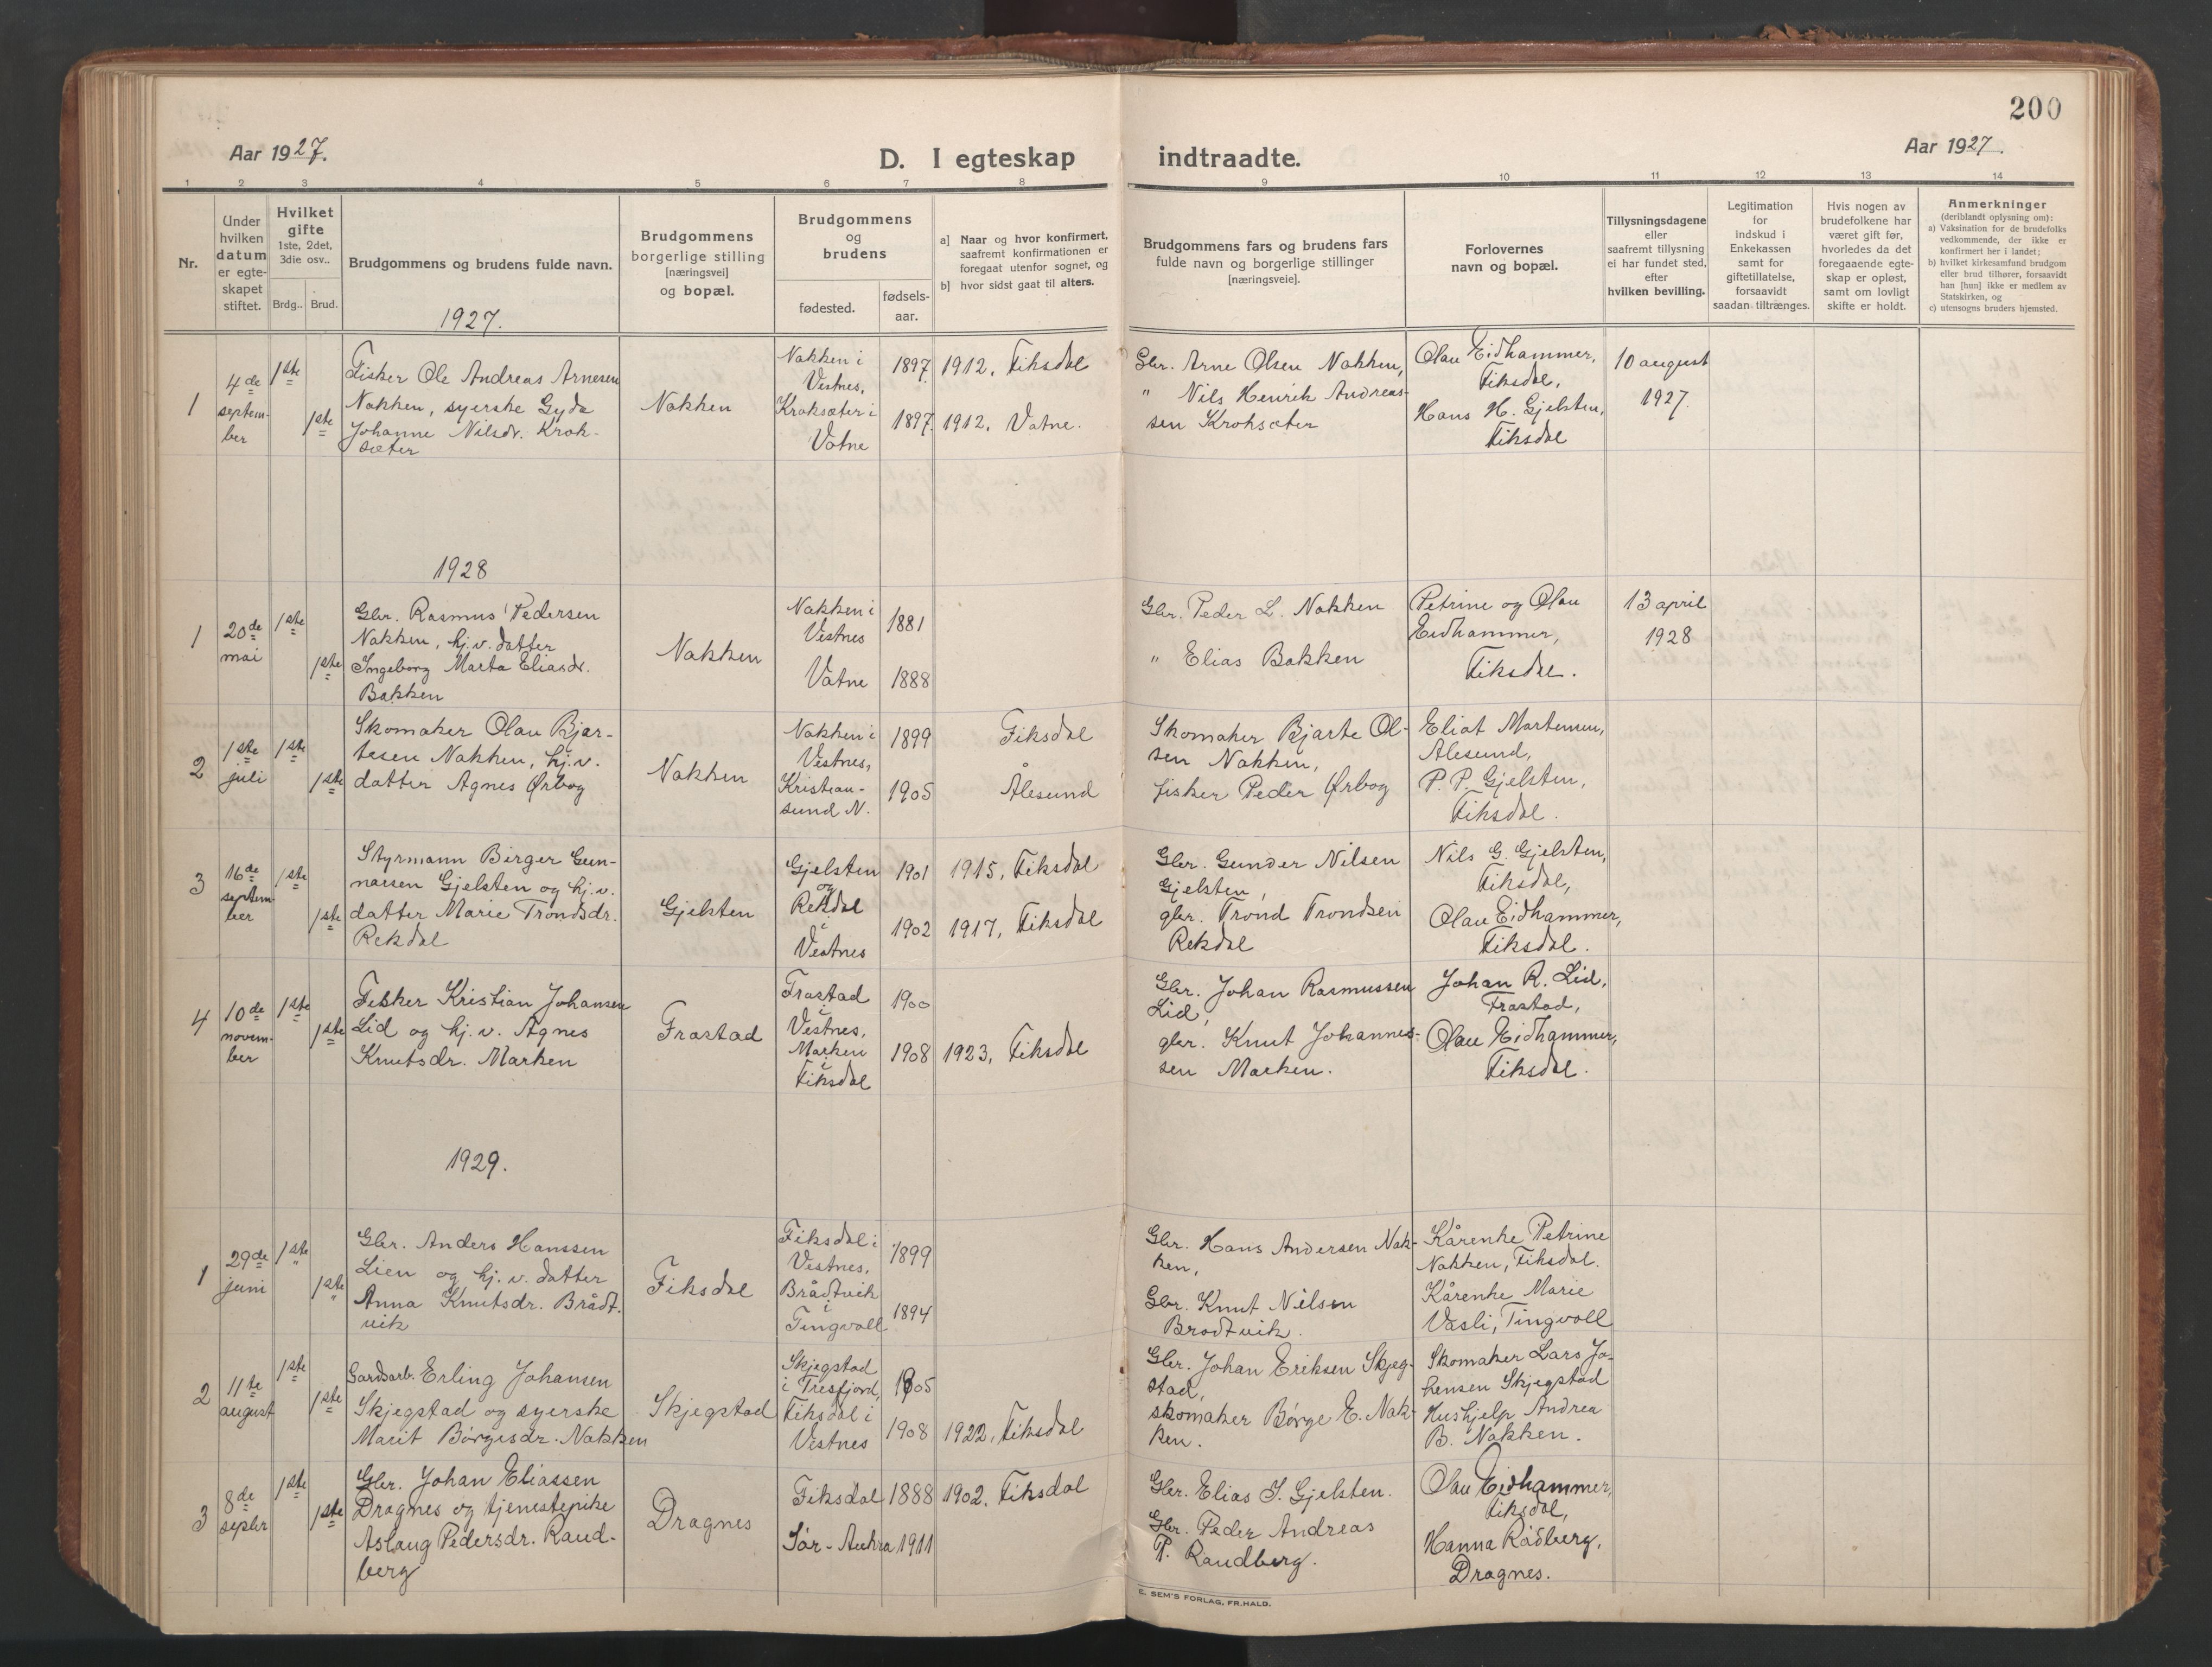 200
Aar 1927.
D. I egteskap indtraadte.
Aar 1927.
1 2 3 4 5 6 7 8 9 10 11 12 13 14
Nr.
Under
hvilken
datum
er egte-
skapet
stiftet.
Hvilket
gifte
1ste, 2det,
3die osv..
Brdg..
Brud.
Brudgommens og brudens fulde navn.
Brudgommens
borgerlige stilling
[næringsvei]
og bopæl.
Brudgommens
og
brudens
fødested.
fødsels-
aar.
a] Naar og hvor konfirmert,
saafremt konfirmationen er
foregaat utenfor sognet, og
b] hvor sidst gaat til alters.
Brudgommens fars og brudens fars
fulde navn og borgerlige stillinger
[næringsveie].
Forlovernes
navn og bopæl.
Tillysningsdagene
eller
saafremt tillysning
ei har fundet sted,
efter
hvilken bevilling.
Legitimation
for
indskud i
Enkekassen
samt for
giftetillatelse,
forsaavidt
saadan tiltrænges.
Hvis nogen av
brudefolkene har
været gift før,
hvorledes da det
foregaaende egte-
skap er opløst,
samt om lovligt
skifte er holdt.
Anmerkninger
(deriblandt oplysning om):
a) Vaksination for de brudefolks
vedkommende, der ikke er
konfirmert her i landet;
b) hvilket kirkesamfund brudgom
eller brud tilhører, forsaavidt
han [hun] ikke er medlem av
Statskirken, og
c) utensogns bruders hjemsted.
1927.
1
4de
septem-
ber
1ste
1ste
Fisker Ole Andreas Arnesen
Nakken, syerske Gyda
Johanne Nilsdr. Krok-
sæter
Nakken
Nakken i
Vestnes,
Kroksæter i
Vatne
1897.
1897.
1912, Fiksdal
1912, Vatne.
Gbr. Arne Olsen Nakken,
" Nils Henrik Andreas-
sen Kroksæter
Olau Eidhammer,
Fiksdal,
Hans H. Gjelsten,
Fiksdal
10 august
1927.
1928
1
20de
mai
1ste
1ste
Gbr. Rasmus Pedersen
Nakken, hj.v. datter
Ingeborg Marta Eliasdr.
Bakken
Nakken
Nakken i
Vestnes
Vatne
1881
1888
Gbr. Peder L. Nakken
" Elias Bakken
Petrine og Olau
Eidhammer,
Fiksdal.
13 april
1928
2
1ste
juli
1ste
1ste
Skomaker Olau Bjar-
tesen Nakken, hj.v.
datter Agnes Ørbog
Nakken
Nakken i
Vestnes,
Kristian-
sund N.
1899
1905
Fiksdal
Ålesund
Skomaker Bjarte Ol-
sen Nakken,
fisker Peder Ørbog
Eliat Martensen,
Alesund,
P. P. Gjelsten,
Fiksdal.
3
16de
septem-
ber
1ste
1ste
Styrmann Birger Gun-
narsen Gjelsten og hj.v.
datter Marie Trondsdr.
Rekdal
Gjelsten
Gjelsten
og
Rekdal
i
Vestnes
1901
1902
1915, Fiksdal
1917, Fiksdal
Gbr. Gunder Nilsen
Gjelsten,
gbr. Trond Trondsen
Rekdal
Nils G. Gjelsten,
Fiksdal,
Olau Eidhammer,
Fiksdal.
4
10de
novem-
ber
1ste
1ste
Fisker Kristian Johansen
Lid og hj.v. Agnes
Knutsdr. Marken
Frastad
Frastad
i
Vestnes,
Marken
i
Fiksdal
1900
1908
1923, Fiksdal
Gbr. Johan Rasmussen
Lid,
gbr. Knut Johannes-
sen Marken.
Johan R. Lid,
Frastad,
Olau Eidhammer,
Fiksdal.
1929.
1
29de
juni
1ste
1ste
Gbr. Anders Hanssen
Lien og hj.v. datter
Anna Knutsdr. Brådt-
vik
Fiksdal
Fiksdal i
Vestnes,
Brådtvik
i
Tingvoll
1899
1894
Gbr. Hans Andersen Nak-
ken,
Gbr. Knut Nilsen
Brodtvik.
Kårenke Petrine
Nakken, Fiksdal.
Kårenke Marie
Vasli, Tingvoll
2
11te
august
1ste
1ste
Gardsarb. Erling Johansen
Skjegstad og syerske
Marit Børgesdr. Nakken
Skjegstad
Skjegstad
i Tresfjord,
Fiksdal i
Vestnes
1905
1908
1922, Fiksdal
Gbr. Johan Eriksen Skjeg-
stad,
skomaker Børge E. Nak-
ken.
Skomaker Lars Jo-
hensen Skjegstad
Hushjelp Andrea
B. Nakken.
3
8de
septbr
1ste
1ste
Gbr. Johan Eliassen
Dragnes og tjenestepike
Aslaug Pedersdr. Raud-
berg
Dragnes
Fiksdal
Sør-Aukra
1888
1911
1902. Fiksdal
Gbr. Elias J. Gjelsten.
Gbr. Peder Andreas
P. Raudberg.
Olau Eidhammer,
Fiksdal,
Hanna Rådberg,
Dragnes.
E. SEM'S FORLAG, FR.HALD.